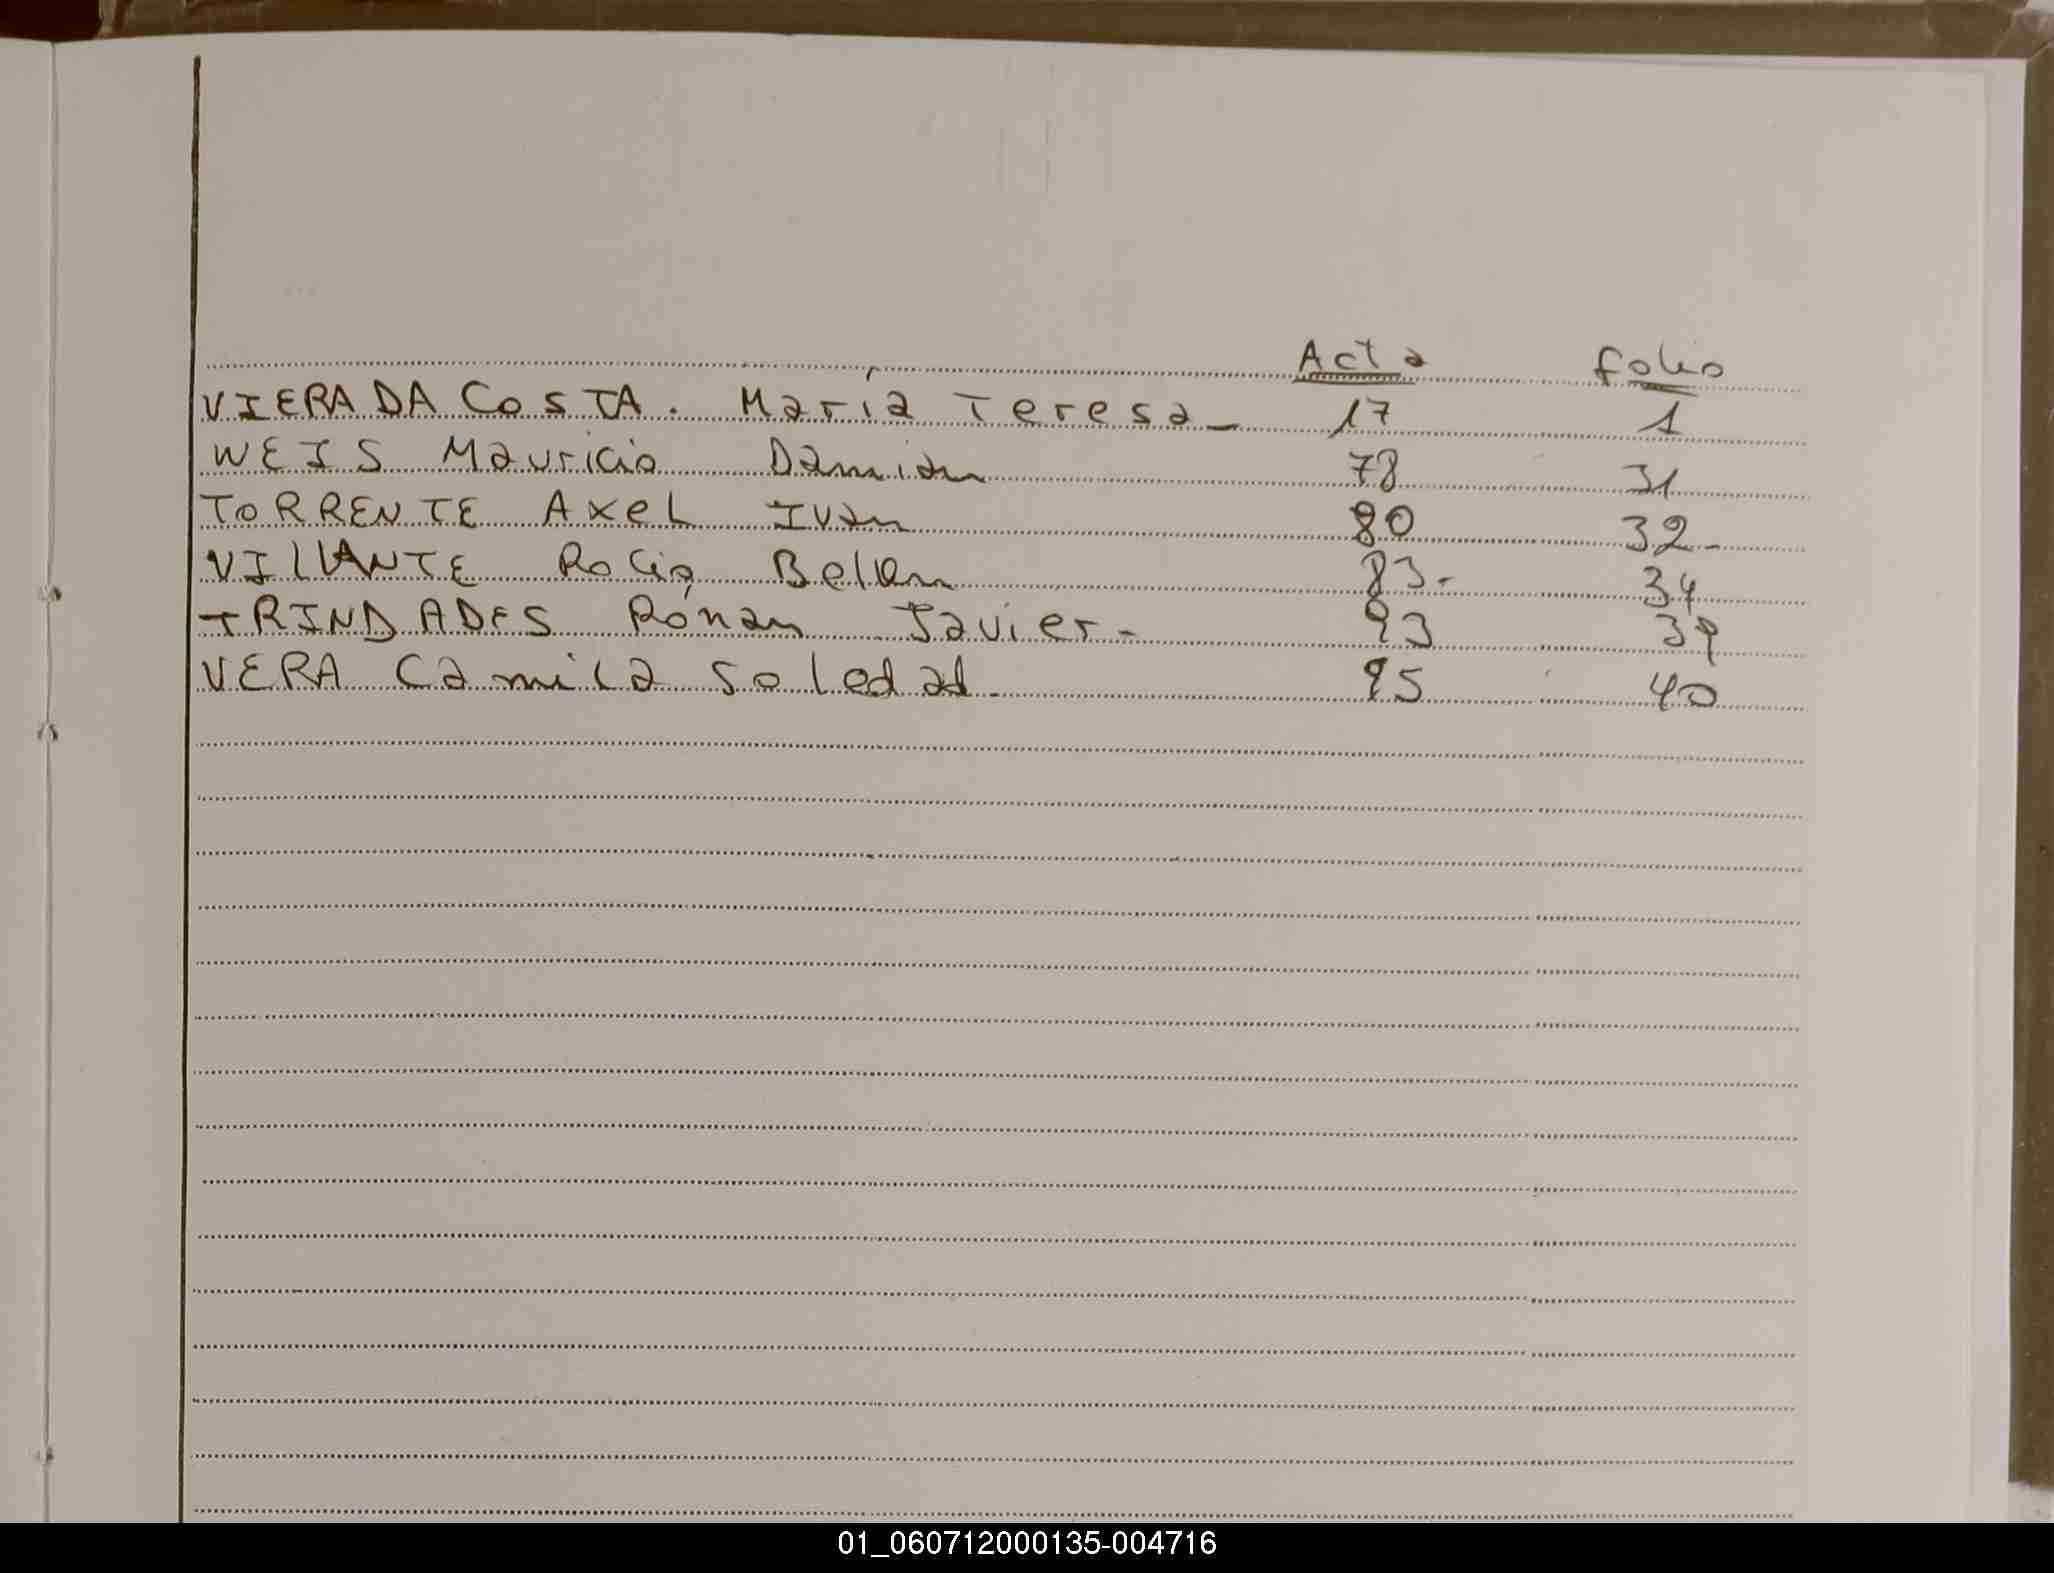 Acta folio
VIERA DA COSTA. María Teresa_ 17 1
WEIS Mauricio Damian 78 31
TORRENTE Axel Ivan 80 32-
VILLANTE Rocío Belen 83- 34
TRINDADES Román Javier- 93 39
VERA Camila Soledad. 95 40
01_060712000135-004716